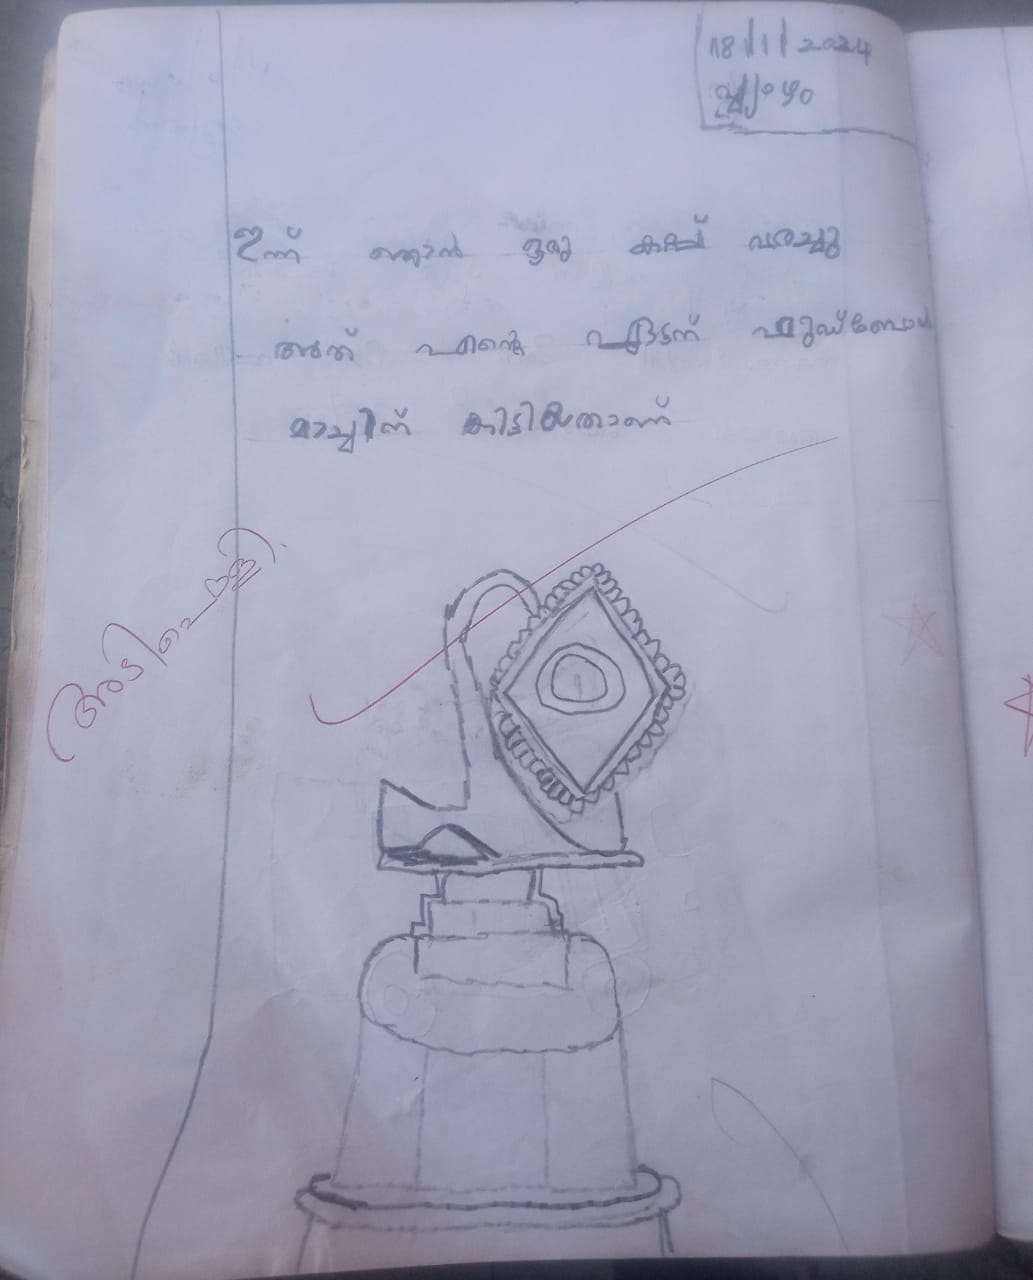 18/1/2024
വ്യാഴം
ഇന്ന് ഞാൻ ഒരു കപ്പ് വരച്ചു
അത് എന്റെ ഏട്ടന് ഫുഡ്ബോൾ
മാച്ചിന് കിട്ടിയതാണ്
അടിപൊളി